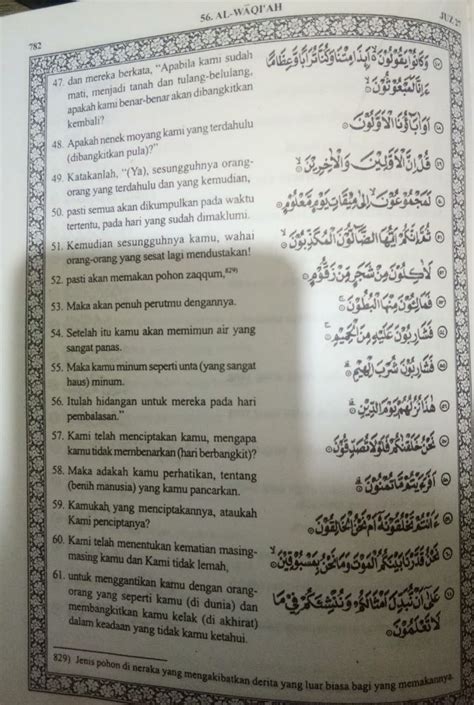 782
56. AL-WĀQI'AH
JUZ 27
47. dan mereka berkata, "Apabila kami sudah
mati, menjadi tanah dan tulang-belulang,
apakah kami benar-benar akan dibangkitkan
kembali?
48. Apakah nenek moyang kami yang terdahulu
(dibangkitkan pula)?"
49. Katakanlah, "(Ya), sesungguhnya orang-
orang yang terdahulu dan yang kemudian,
50. pasti semua akan dikumpulkan pada waktu
tertentu, pada hari yang sudah dimaklumi.
51. Kemudian sesungguhnya kamu, wahai
orang-orang yang sesat lagi mendustakan!
52. pasti akan memakan pohon zaqqum,829)
53. Maka akan penuh perutmu dengannya.
54. Setelah itu kamu akan memimun air yang
sangat panas.
55. Maka kamu minum seperti unta (yang sangat
haus) minum.
56. Itulah hidangan untuk mereka pada hari
pembalasan."
57. Kami telah menciptakan kamu, mengapa
kamu tidak membenarkan (hari berbangkit)?
58. Maka adakah kamu perhatikan, tentang
(benih manusia) yang kamu pancarkan.
59. Kamukah yang menciptakannya, ataukah
Kami penciptanya?
60. Kami telah menentukan kematian masing-
masing kamu dan Kami tidak lemah,
61. untuk menggantikan kamu dengan orang-
orang yang seperti kamu (di dunia) dan
membangkitkan kamu kelak (di akhirat)
dalam keadaan yang tidak kamu ketahui.
وَكَانُوْا يَقُوْلُوْنَ ەۙ اَىِٕذَا مِتْنَا وَكُنَّا تُرَابًا وَّعِظَامًا
ءَاِنَّا لَمَبْعُوْثُوْنَۙ
اَوَاٰبَاۤؤُنَا الْاَوَّلُوْنَ
قُلْ اِنَّ الْاَوَّلِيْنَ وَالْاٰخِرِيْنَۙ
لَمَجْمُوْعُوْنَۙ اِلٰى مِيْقَاتِ يَوْمٍ مَّعْلُوْمٍ
ثُمَّ اِنَّكُمْ اَيُّهَا الضَّاۤلُّوْنَ الْمُكَذِّبُوْنَۙ
لَاٰكِلُوْنَ مِنْ شَجَرٍ مِّنْ زَقُّوْمٍۙ
فَمَالِـُٔوْنَ مِنْهَا الْبُطُوْنَۚ
فَشَارِبُوْنَ عَلَيْهِ مِنَ الْحَمِيْمِۚ
فَشَارِبُوْنَ شُرْبَ الْهِيْمِۗ
هٰذَا نُزُلُهُمْ يَوْمَ الدِّيْنِۗ
نَحْنُ خَلَقْنٰكُمْ فَلَوْلَا تُصَدِّقُوْنَ
اَفَرَءَيْتُمْ مَّا تُمْنُوْنَۗ
ءَاَنْتُمْ تَخْلُقُوْنَهٗٓ اَمْ نَحْنُ الْخَالِقُوْنَ
نَحْنُ قَدَّرْنَا بَيْنَكُمُ الْمَوْتَ وَمَا نَحْنُ بِمَسْبُوْقِيْنَۙ
عَلٰٓى اَنْ نُّبَدِّلَ اَمْثَالَكُمْ وَنُنْشِئَكُمْ فِيْ مَا
لَا تَعْلَمُوْنَ
829) Jenis pohon di neraka yang mengakibatkan derita yang luar biasa bagi yang memakannya.